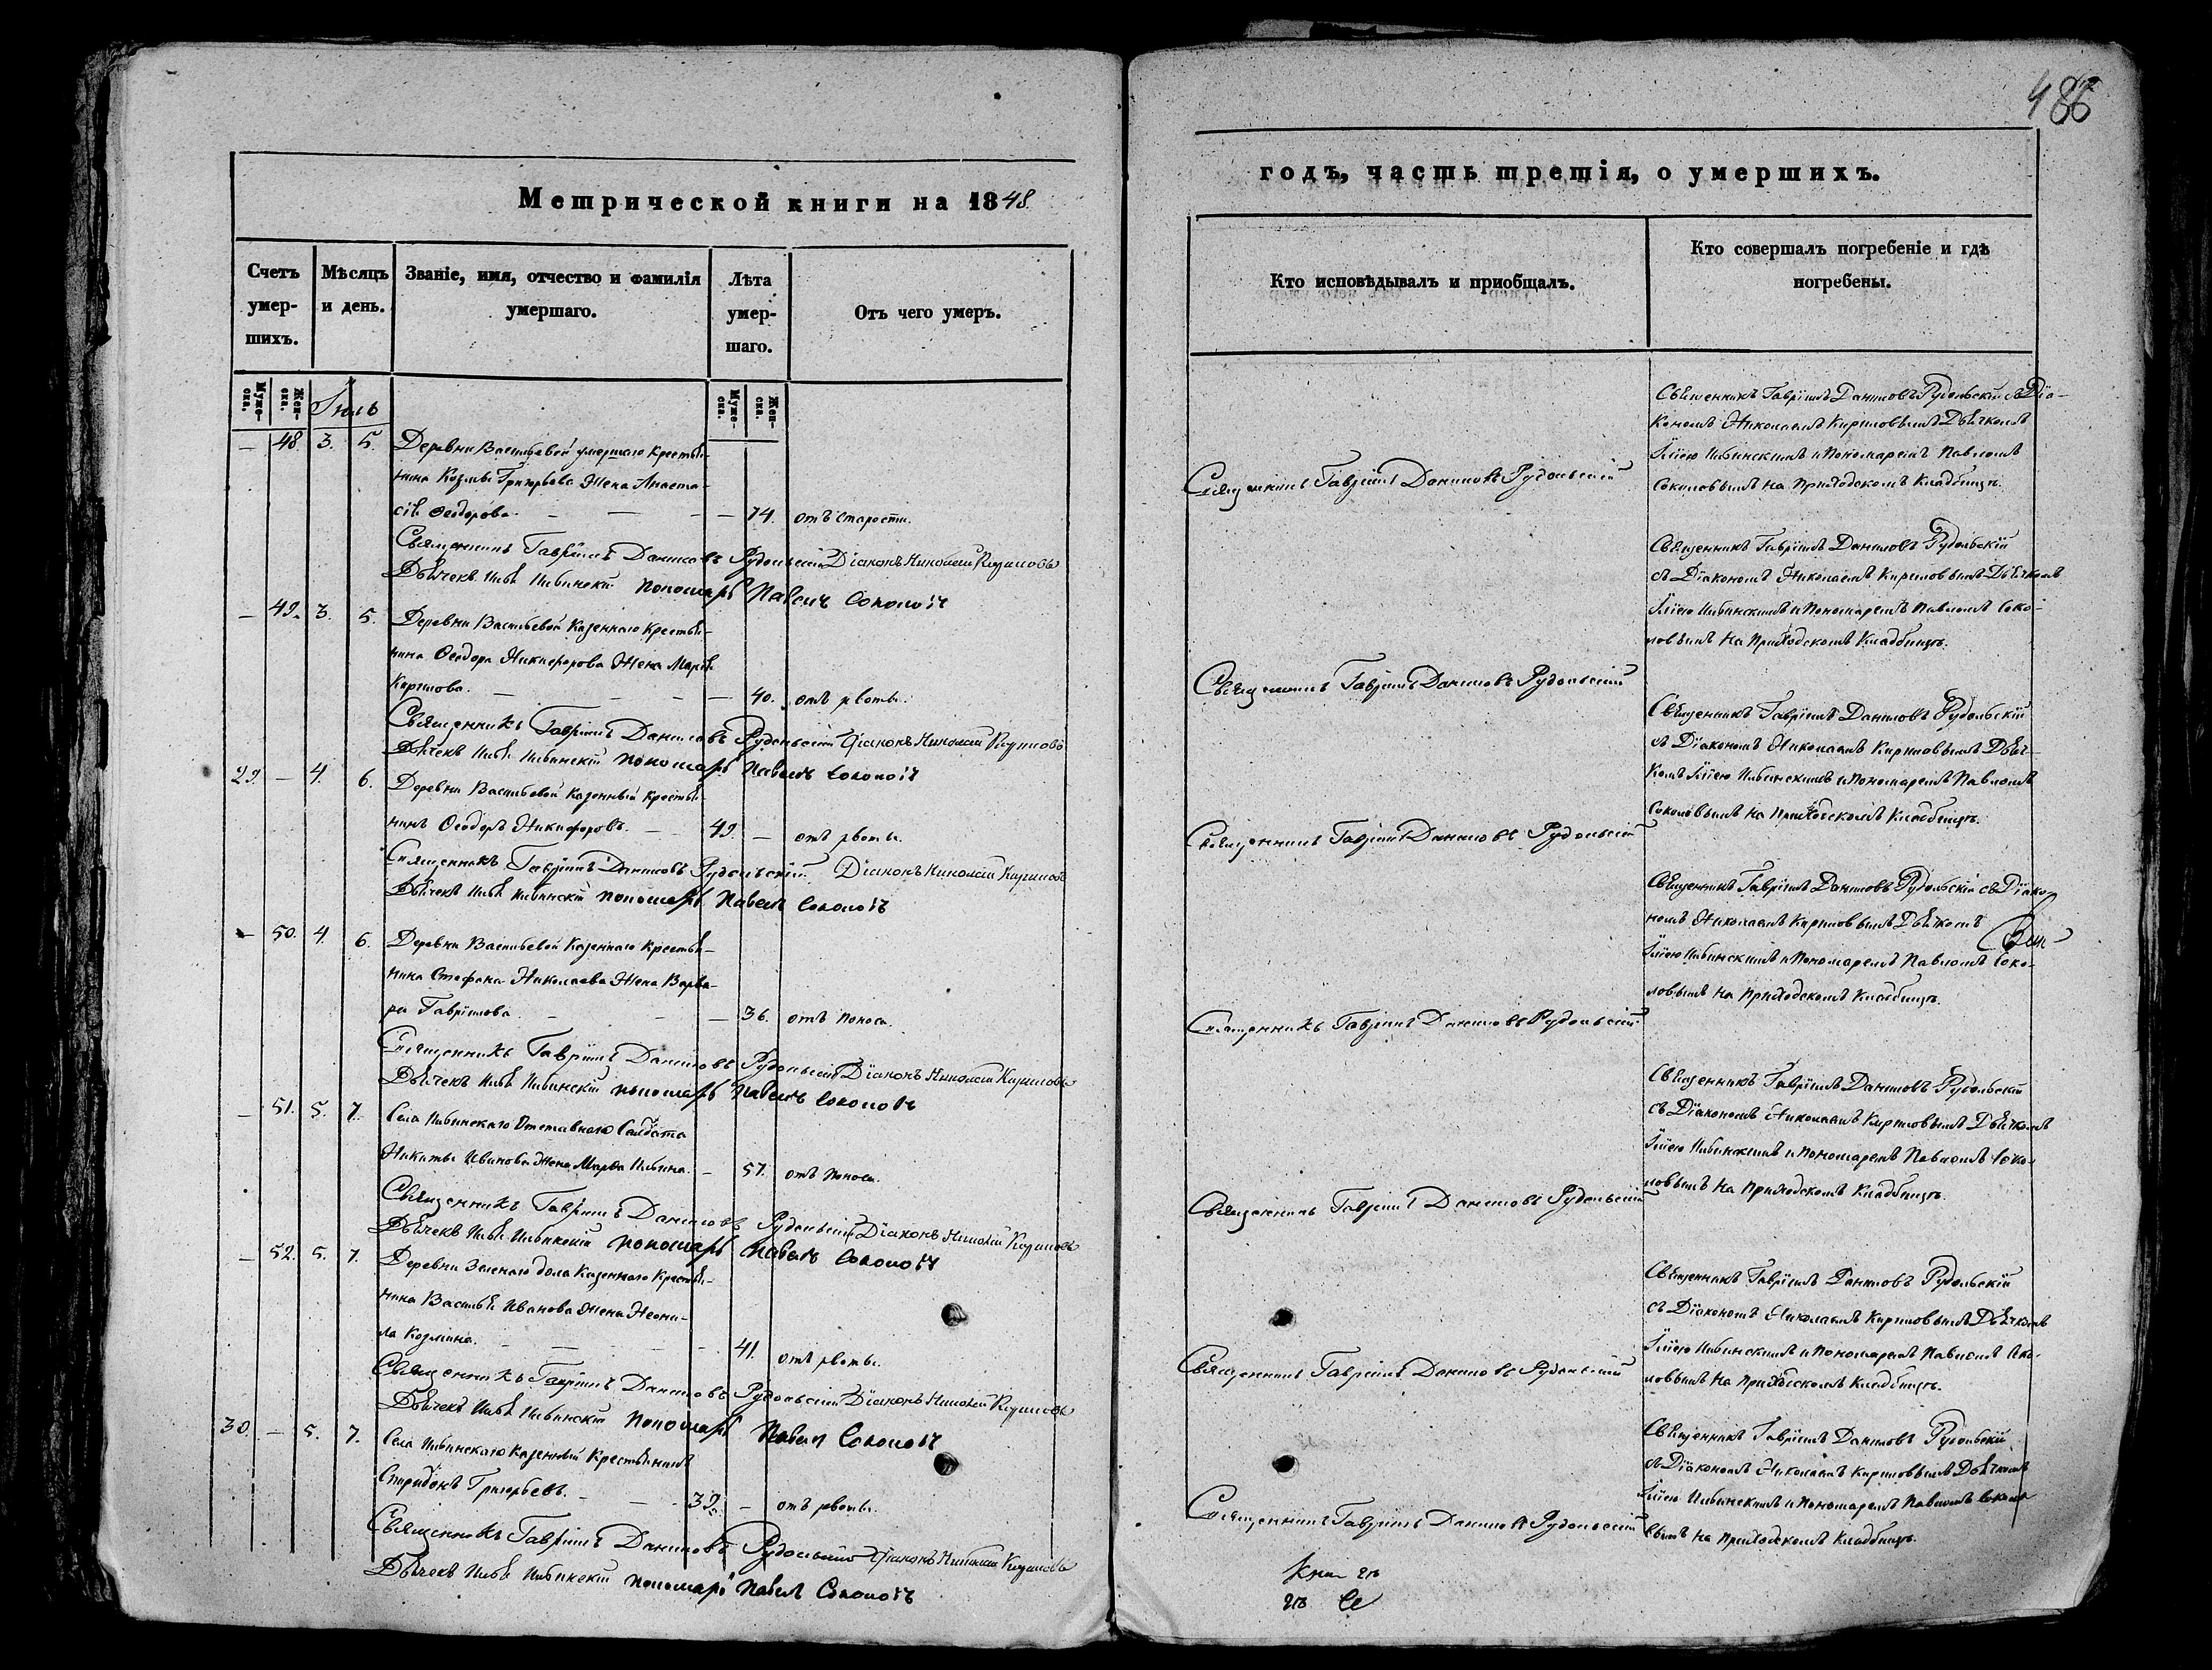 Метрической книги на 1848.
Счетъ умер-шихъ.
Мѣсяцъ и день.
Званіе, имя, отчество и фамилія умершаго.
Лѣта умер-шаго.
Отъ чего умеръ.
Муже-ска.
Жен-ска.
Іюль
Муже-ска.
Жен-ска.
— 48. 3. 5. Деревни Васильевой умершаго крестья-
нина Козмы Григорьева жена Анаста-
сія Ѳеодорова. — 74. отъ старости.
Священникъ Гавріилъ Даниловъ Рудольскій Діаконъ Николай Кириловъ
Дьячекъ Илья Ильинскій пономарь Павелъ Соколовъ
— 49. 3. 5. Деревни Васильевой казеннаго крестья-
нина Ѳеодора Никифорова жена Марѳа
Кирилова. — 40. отъ рвоты.
Священникъ Гавріилъ Даниловъ Рудольскій Діаконъ Николай Кириловъ
Дьячекъ Илья Ильинскій пономарь Павелъ Соколовъ
29. — 4. 6. Деревни Васильевой казенный крестья-
нинъ Ѳеодоръ Никифоровъ. 49. — отъ рвоты.
Священникъ Гавріилъ Даниловъ Рудольскій Діаконъ Николай Кириловъ
Дьячекъ Илья Ильинскій пономарь Павелъ Соколовъ
— 50. 4. 6. Деревни Васильевой казеннаго крестья-
нина Стефана Николаева жена Варва-
ра Гаврилова. — 36. отъ поноса.
Священникъ Гавріилъ Даниловъ Рудольскій Діаконъ Николай Кириловъ
Дьячекъ Илья Ильинскій пономарь Павелъ Соколовъ
— 51. 5. 7. Села Ильинскаго отставнаго солдата
Никиты Иванова жена Марѳа Ильина. — 57. отъ поноса.
Священникъ Гавріилъ Даниловъ Рудольскій Діаконъ Николай Кириловъ
Дьячекъ Илья Ильинскій пономарь Павелъ Соколовъ
— 52. 5. 7. Деревни Зеленаго дола казеннаго крестья-
нина Василья Иванова жена Неони-
ла Козмина. — 41. отъ рвоты.
Священникъ Гавріилъ Даниловъ Рудольскій Діаконъ Николай Кириловъ
Дьячекъ Илья Ильинскій пономарь Павелъ Соколовъ
30. — 5. 7. Села Ильинскаго казенный крестьянинъ
Спиридонъ Григорьевъ. 39. — отъ рвоты.
Священникъ Гавріилъ Даниловъ Рудольскій Діаконъ Николай Кириловъ
Дьячекъ Илья Ильинскій пономарь Павелъ Соколовъ
486
годъ, часть третія, о умершихъ.
Кто исповѣдывалъ и приобщалъ.
Кто совершалъ погребеніе и гдѣ погребены.
Священникъ Гавріилъ Даниловъ Рудольскій
Священникъ Гавріилъ Даниловъ Рудольскій съ Діа-
кономъ Николаемъ Кириловымъ Дьячкомъ
Ильею Ильинскимъ и Пономаремъ Павломъ
Соколовымъ на приходскомъ кладбищѣ.
Священникъ Гавріилъ Даниловъ Рудольскій
Священникъ Гавріилъ Даниловъ Рудольскій
съ Діакономъ Николаемъ Кириловымъ Дьячкомъ
Ильею Ильинскимъ и Пономаремъ Павломъ Соко-
ловымъ на приходскомъ кладбищѣ.
Священникъ Гавріилъ Даниловъ Рудольскій
Священникъ Гавріилъ Даниловъ Рудольскій
съ Діакономъ Николаемъ Кириловымъ Дьяч-
комъ Ильею Ильинскимъ и Пономаремъ Павломъ
Соколовымъ на приходскомъ кладбищѣ.
Священникъ Гавріилъ Даниловъ Рудольскій
Священникъ Гавріилъ Даниловъ Рудольскій съ Діако-
номъ Николаемъ Кириловымъ Дьячкомъ
Ильею Ильинскимъ и Пономаремъ Павломъ Соко-
ловымъ на приходскомъ кладбищѣ.
Священникъ Гавріилъ Даниловъ Рудольскій
Священникъ Гавріилъ Даниловъ Рудольскій
съ Діакономъ Николаемъ Кириловымъ Дьячкомъ
Ильею Ильинскимъ и Пономаремъ Павломъ Соко-
ловымъ на приходскомъ кладбищѣ.
Священникъ Гавріилъ Даниловъ Рудольскій
Священникъ Гавріилъ Даниловъ Рудольскій
съ Діакономъ Николаемъ Кириловымъ Дьячкомъ
Ильею Ильинскимъ и Пономаремъ Павломъ Соко-
ловымъ на приходскомъ кладбищѣ.
Священникъ Гавріилъ Даниловъ Рудольскій
Священникъ Гавріилъ Даниловъ Рудольскій
съ Діакономъ Николаемъ Кириловымъ Дьячкомъ
Ильею Ильинскимъ и Пономаремъ Павломъ Соколо-
вымъ на приходскомъ кладбищѣ.